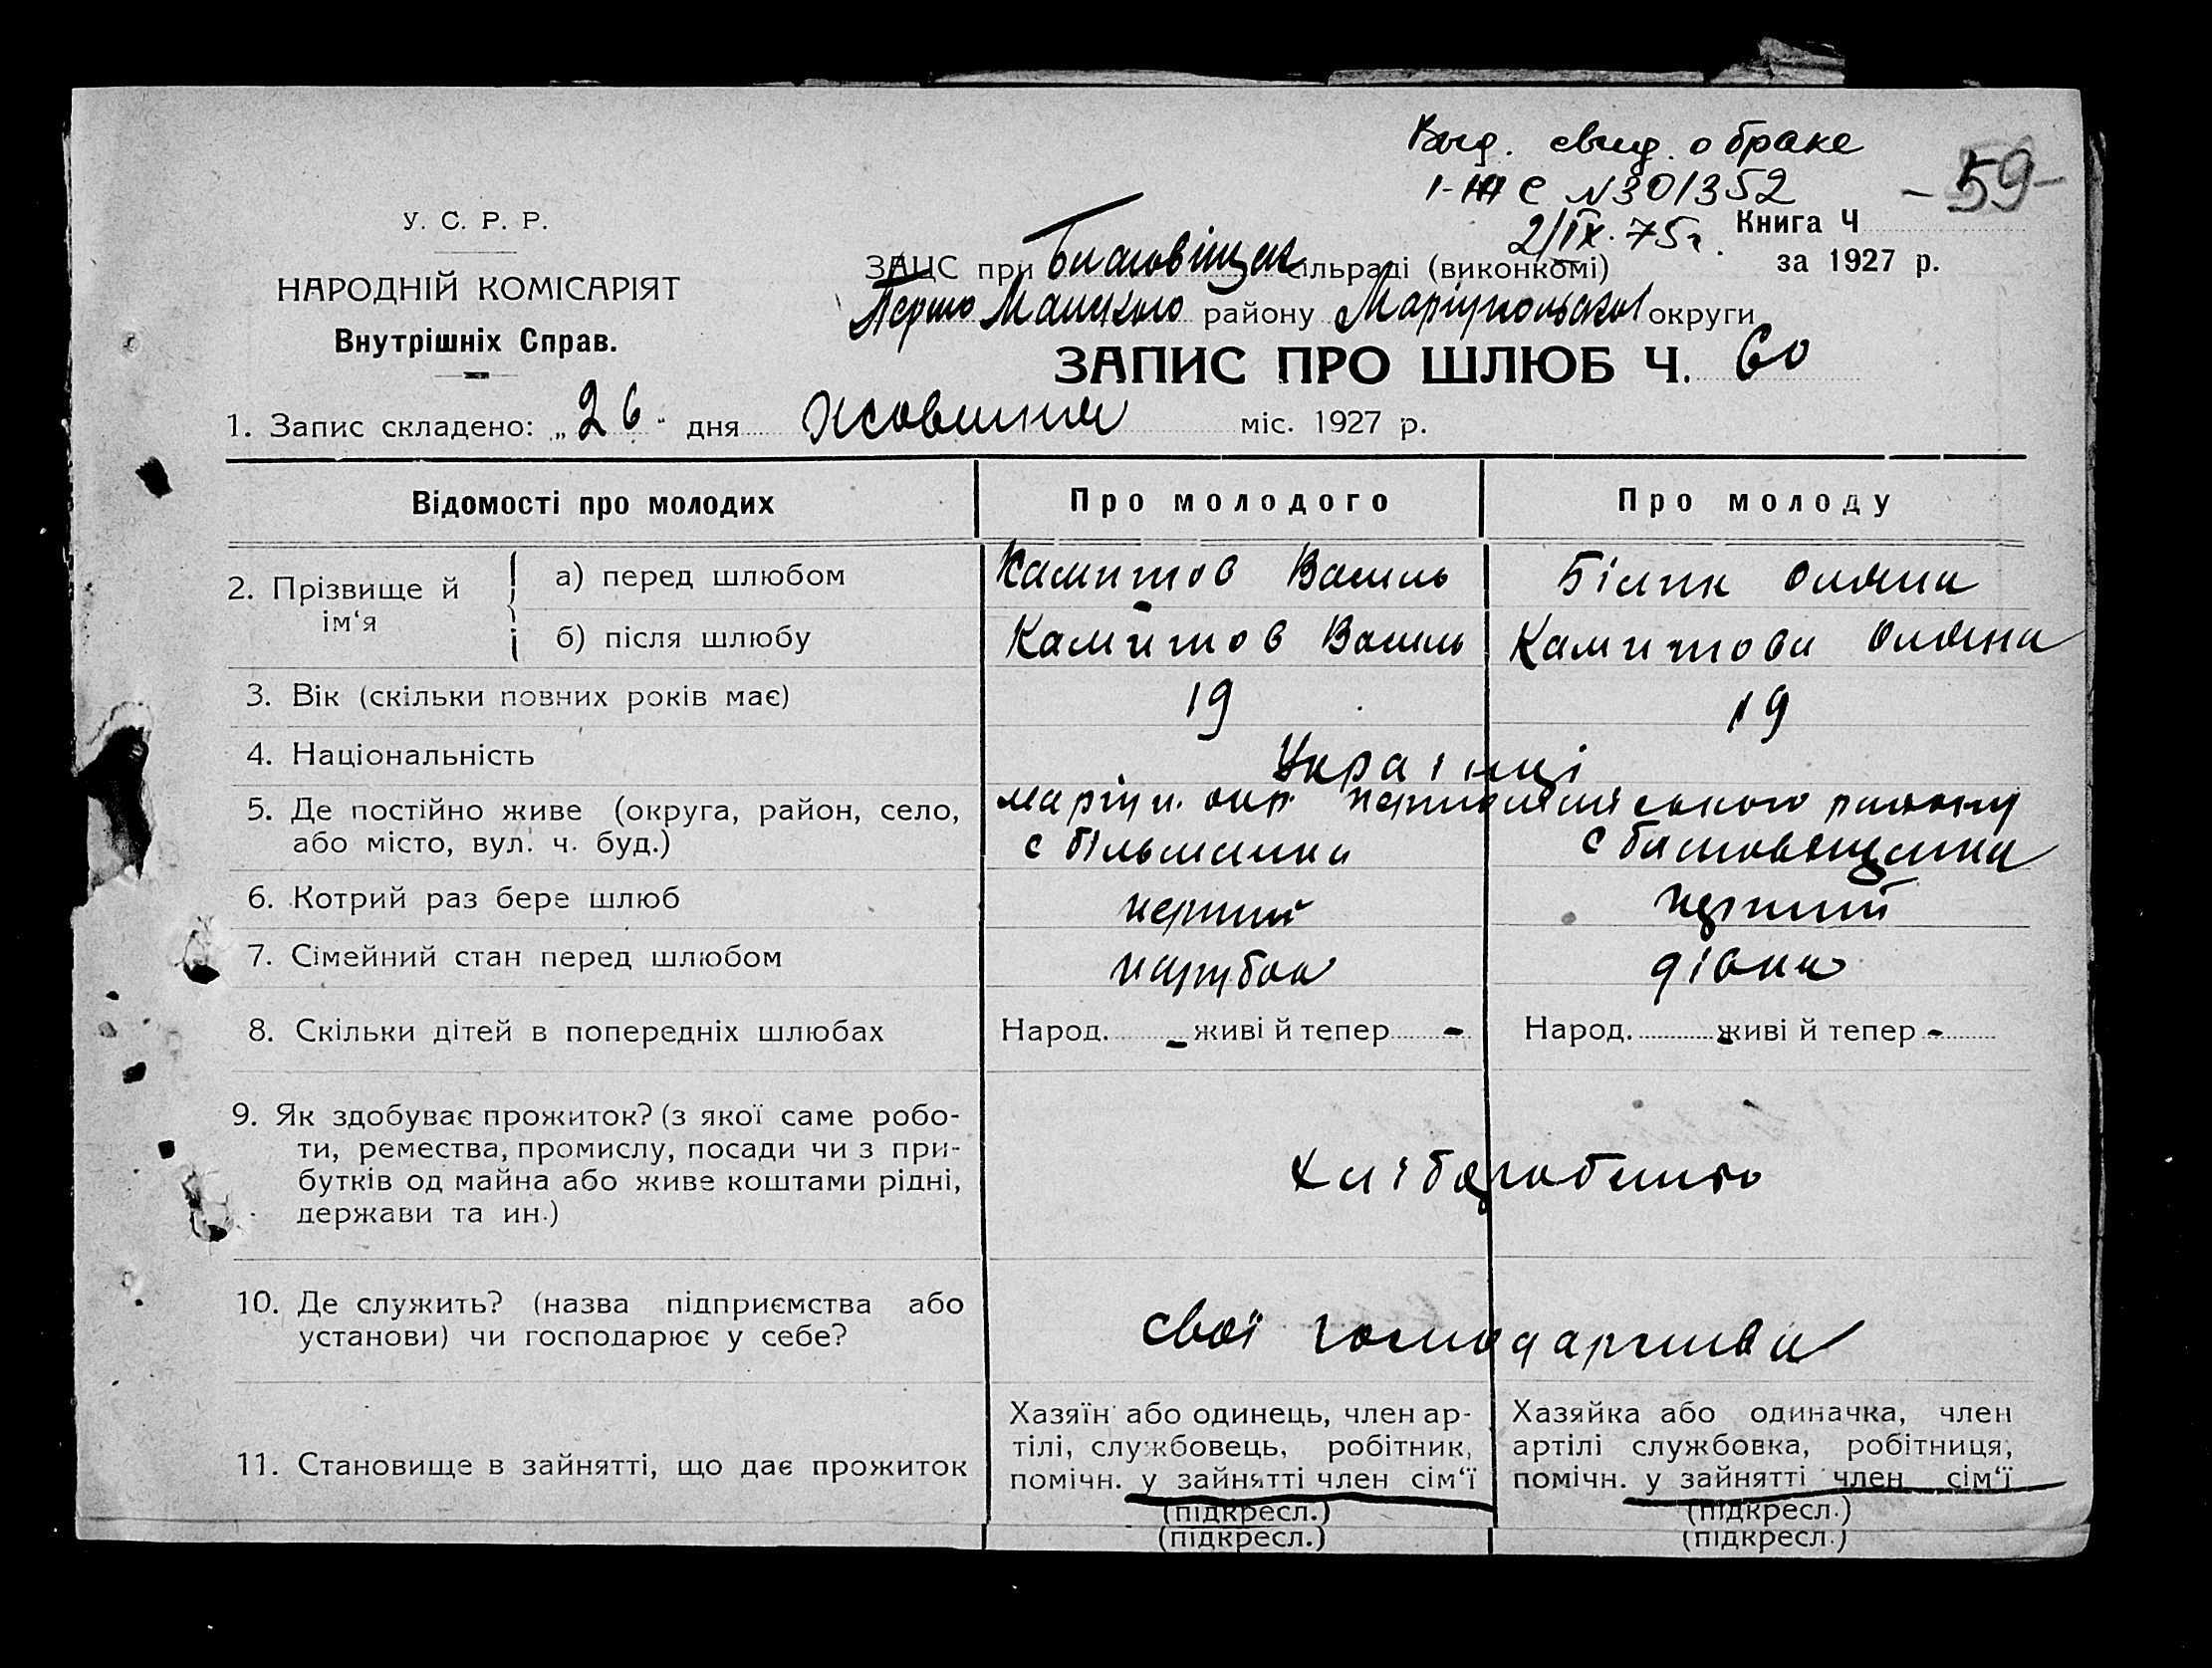 Выд. свид. о браке
I-ЖС N 301352
2/IX.75г.
-59-
У. С. Р. Р.
Книга Ч
НАРОДНІЙ КОМІСАРІЯТ
Внутрішніх Справ.
ЗАЦС при сільраді (виконкомі)
за 1927 р.
району Маріупольської округи
ЗАПИС ПРО ШЛЮБ Ч. 60
1. Запис складено: „26" дня Жовтня міс. 1927 р.
Відомості про молодих
Про молодого
Про молоду
2. Прізвище й ім‘я
а) перед шлюбом
Камитов Василь
Білик Оляна
б) після шлюбу
Камитов Василь
Камитова Оляна
3. Вік (скільки повних років має)
19
19
4. Національність
Українці
5. Де постійно живе (округа, район, село,
або місто, вул. ч. буд.)
маріуп. окр. району
с Більманка
с
6. Котрий раз бере шлюб
перший
перший
7. Сімейний стан перед шлюбом
парубок
дівка
8. Скільки дітей в попередніх шлюбах
Народ. - живі й тепер -
Народ. - живі й тепер -
9. Як здобуває прожиток? (з якої саме робо-
ти, ремества, промислу, посади чи з при-
бутків од майна або живе коштами рідні,
держави та ин.)
Хліборобство
10. Де служить? (назва підприємства або
установи) чи господарює у себе?
свої господарства
11. Становище в зайнятті, що дає прожиток
Хазяїн або одинець, член ар-
тілі, службовець, робітник,
помічн. у зайнятті член сім‘ї
(підкресл.)
(підкресл.)
Хазяйка або одиначка, член
артілі службовка, робітниця,
помічн. у зайнятті член сім‘ї
(підкресл.)
(підкресл.)